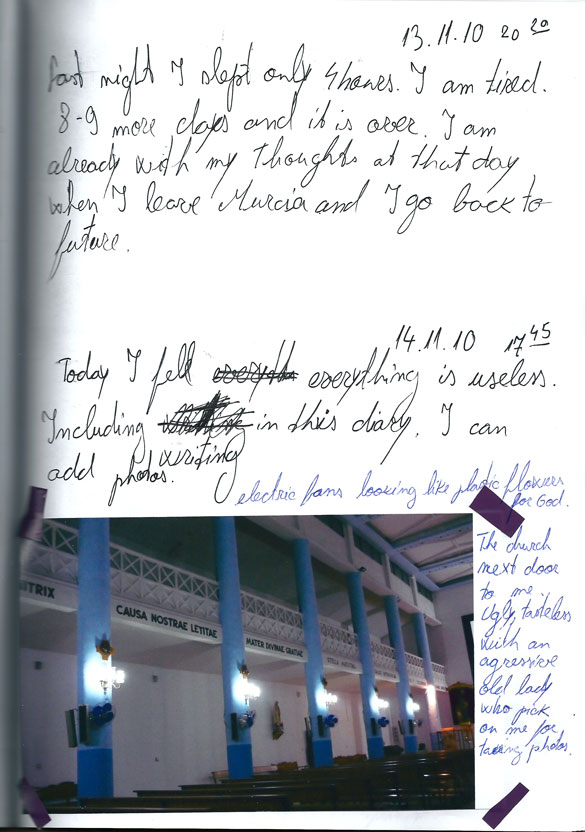 13.11.10 20 20
Last night I slept only 4 houres. I am tired.
8-9 more days and it is over. I am
already with my thoughts at that day
when I leave Murcia and I go back to
future.
14.11.10 17 45
Today I fell everything is useless.
Including writing in this diary. I can
add photos.
electric fans looking like plastic flowers
for God.
The church
next door
to me
Ugly, tasteless
with an
agressive
old lady
who pick
on me for
taking photos.
TRIX
CAUSA NOSTRAE LETITAE
MATER DIVINAE GRATIAE
STELLA